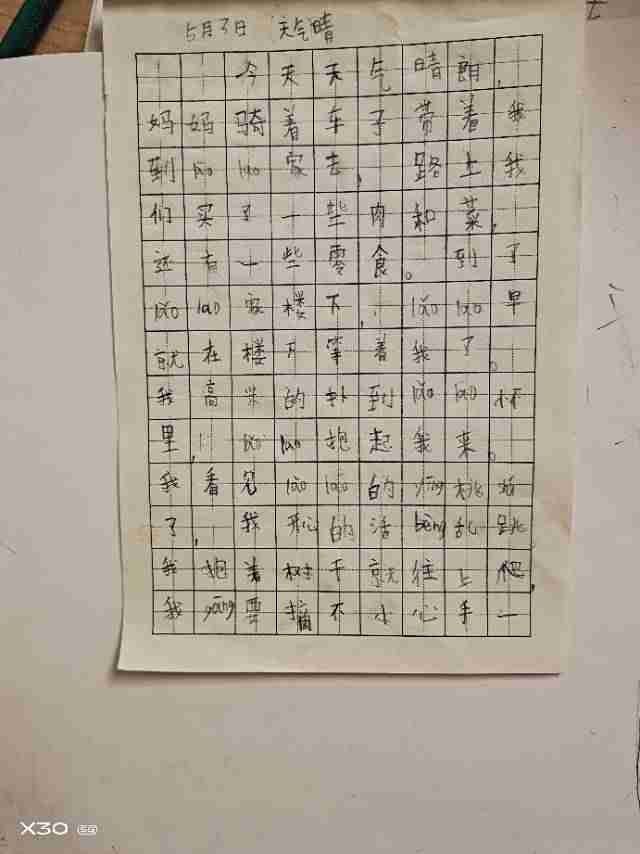 5月3日 天气晴
今天天气晴朗,
妈妈骑着车子带着我
到lǎo lao家去,路上我
们买了一些肉和菜,
还有一些零食。到了
lǎo lao家楼下,lǎo lao早
就在楼下等着我了。
我高兴的扑到lǎo lao怀
里,lǎo lao抱起我来。
我看见lǎo lao的yīng桃
了,我开心的活bèng乱跳
我抱着树干就往上爬,
我yīng要摘不小心手一
X30